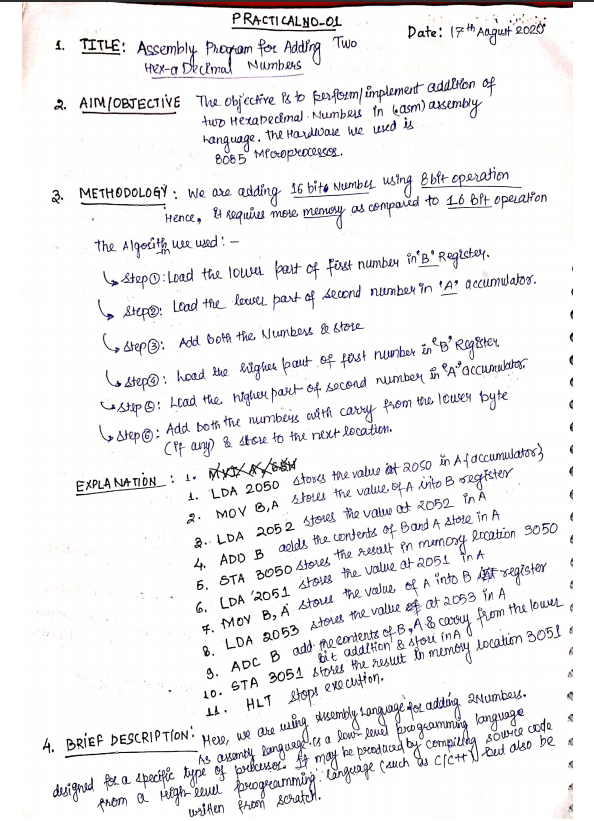 PRACTICAL NO-01
Date: 17th August 2020
1. TITLE: Assembly Program for Adding Two
Hex-a Decimal Numbers
2. AIM/OBJECTIVE The objective is to perform/implement addition of
two HexaDecimal Numbers in (asm) assembly
Language. The Hardware we used is
8085 Microprocessor.
3. METHODOLOGY: We are adding 16 bits Number using 8bit operation
Hence, it requires more memory as compared to 16 Bit operation
The Algorithm we used: -
Step①: Load the lower part of first number in "B" Register.
Step②: Load the lower part of second number in 'A' accumulator.
Step③: Add both the Numbers & store
Step④: Load the higher part of first number in "B" Register.
Step⑤: Load the higher part of second number in "A" accumulator.
Step⑥: Add both the numbers with carry from the lower byte
(if any) & store to the next location.
EXPLANATION: 1.
1. LDA 2050 stores the value at 2050 in A {accumulator}
2. MOV B,A stores the value of A into B register
3. LDA 2052 stores the value at 2052 in A
4. ADD B adds the contents of B and A store in A
5. STA 3050 stores the result in memory location 3050
6. LDA 2051 stores the value at 2051 in A
7. MOV B,A stores the value of A into B register
8. LDA 2053 stores the value at 2053 in A
9. ADC B add the contents of B, A & carry from the lower
bit addition & store in A
10. STA 3051 stores the result in memory location 3051
11. HLT stops execution.
4. BRIEF DESCRIPTION: Here, we are using Assembly Language for adding 2Numbers.
As assembly language is a low-level programming language
designed for a specific type of processor. It may be produced by compiling source code
from a High-level programming language (such as C/C++) but also be
written from scratch.